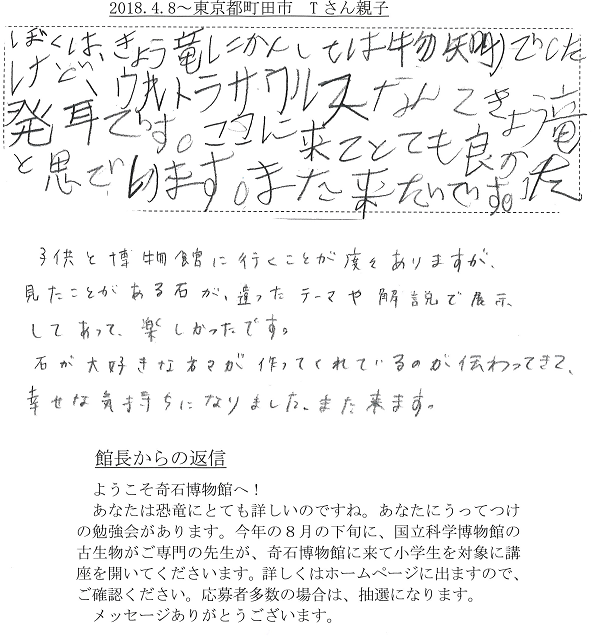 2018.4.8～東京都町田市　Tさん親子
ぼくは、きょう竜にかんしては物知りでした
けど、ウルトラサウルスなんてきょう竜
発耳です。ここに来てとても良かった
と思ています。また来たいです。
子供と博物館に行くことが度々ありますが、
見たことがある石が、違ったテーマや解説で展示
してあって、楽しかったです。
石が大好きな方々が作ってくれているのが伝わってきて、
幸せな気持ちになりました。また来ます。
館長からの返信
ようこそ奇石博物館へ！
あなたは恐竜にとても詳しいのですね。あなたにうってつけ
の勉強会があります。今年の８月の下旬に、国立科学博物館の
古生物がご専門の先生が、奇石博物館に来て小学生を対象に講
座を開いてくださいます。詳しくはホームページに出ますので、
ご確認ください。応募者多数の場合は、抽選になります。
メッセージありがとうございます。